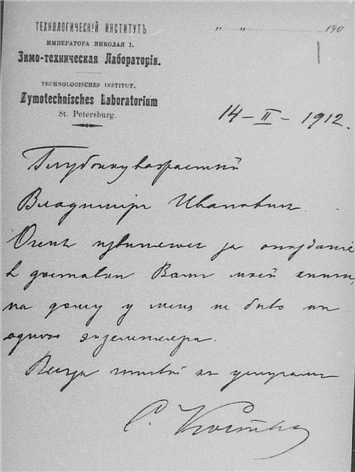 ТЕХНОЛОГИЧЕСКІЙ ИНСТИТУТЪ
ИМПЕРАТОРА НИКОЛАЯ I.
Зимо-техническая Лабораторія.
TECHNOLOGISCHES INSTITUT.
Zymotechnisches Laboratorium
St. Petersburg.
„ „ 190
14-II-1912.
Глубокоуважаемый
Владимиръ Ивановичъ.
Очень извиняюсь за опозданіе
въ доставкѣ Вамъ моей книги,
на дому у меня не было ни
одного экземпляра.
Всегда готовый къ услугамъ
С.